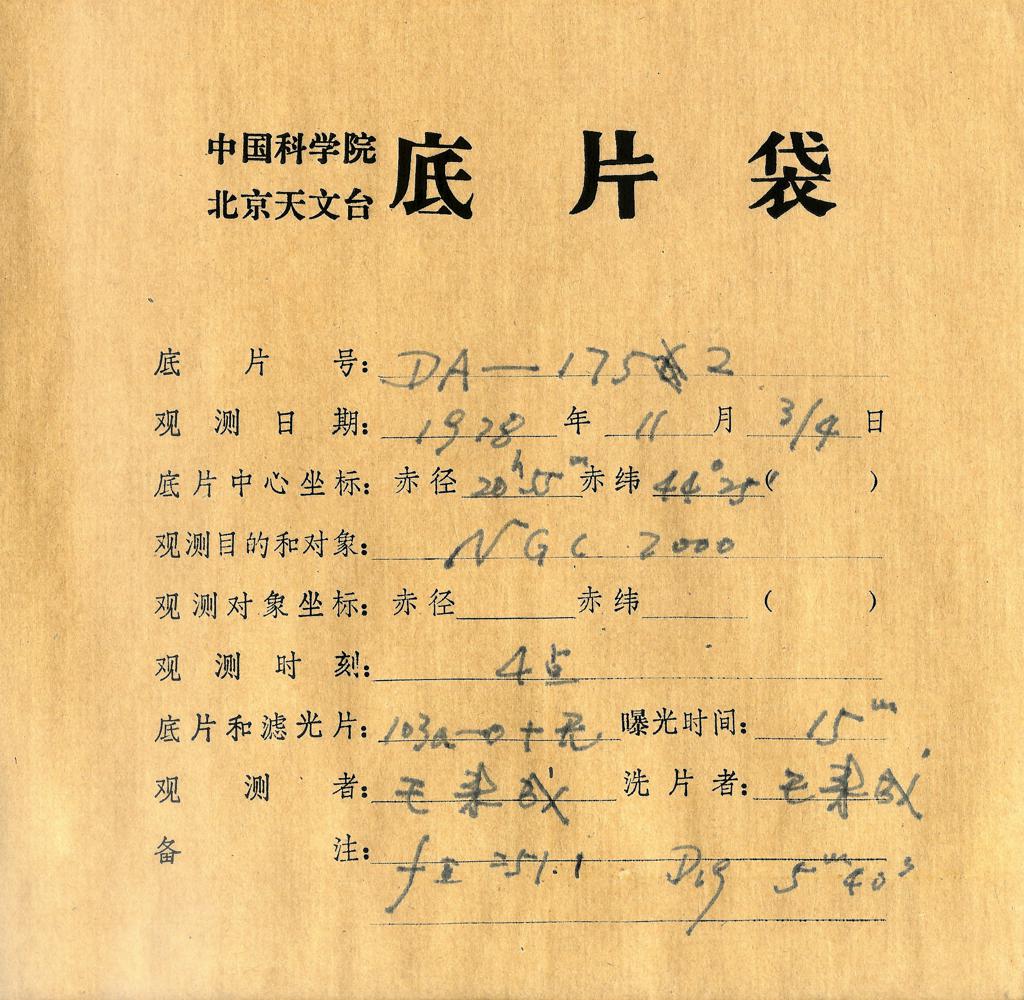 中国科学院
北京天文台 底片袋
底片号: DA—175 2
观测日期: 1978 年 11 月 3/4 日
底片中心坐标: 赤径 20h 55m 赤纬 44° 25' ( )
观测目的和对象: NGC 2000
观测对象坐标: 赤径 赤纬 ( )
观测时刻: 4点
底片和滤光片: 103a-O+无 曝光时间: 15m
观测者: 王 洗片者: 王
备注: f 251.1 D19 5m 40s